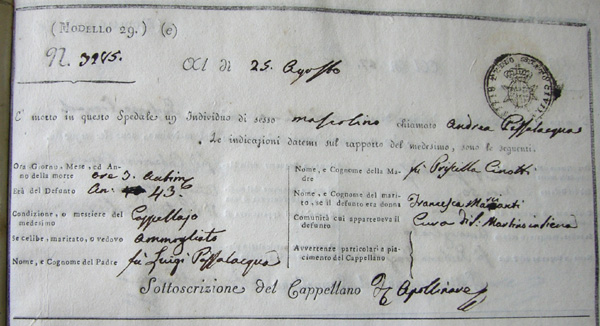 (MODELLO 29.) (e)
N. 3985.
Al di 25. Agosto
E' morto in questo Spedale un Individuo di sesso mascolino chiamato Andrea Passalacqua
Le indicazioni datemi sul rapporto del medesimo, sono le seguenti.
Ora Giorno, Mese, ed An-
no della morte ore 3.
Età del Defunto An: 43.
Condizione, o mestiere del
medesimo Cappellajo
Se celibe, maritato, o vedovo ammogliato
Nome, e Cognome del Padre fù Luigi Passalacqua
Nome, e Cognome della Ma-
dre fù Priscilla
Nome, e Cognome del mari-
to, se il defunto era donna Francesca
Comunità cui apparteneva il
defunto Cura di S. Martino in Siena
Avvertenze particolari a pia-
cimento del Cappellano
Sottoscrizione del Cappellano Apollinare